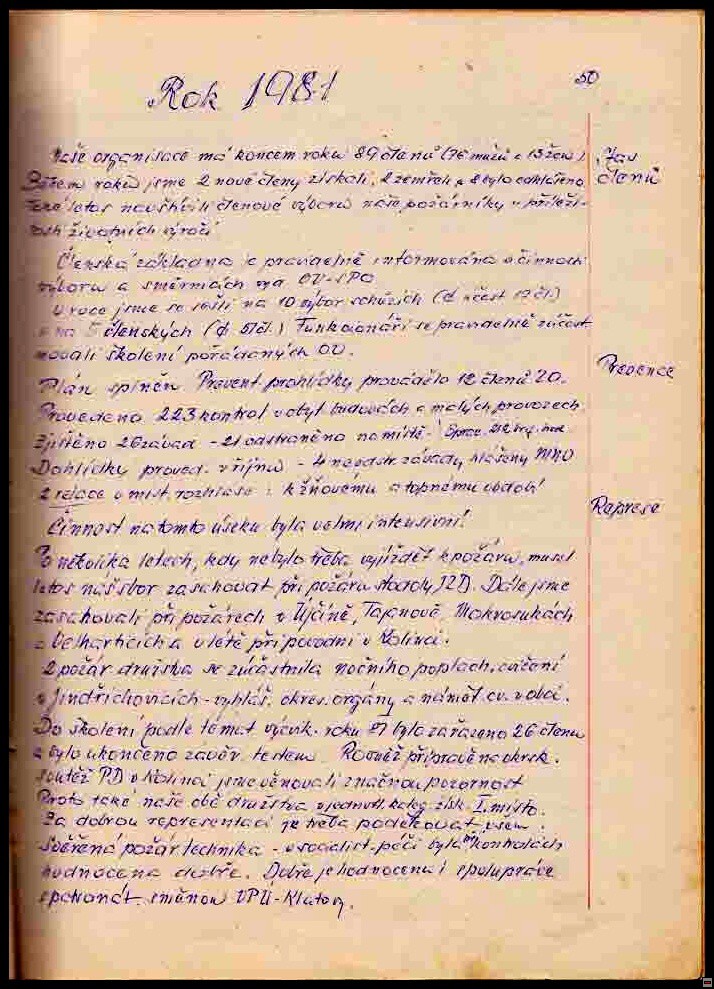 50
Rok 1981
Naše organisace má koncem roku 89 členů (76 mužů a 13 žen).
Stav
členů
Během roku jsme 2 nové členy získali, 2 zemřeli a 8 bylo odhlášeno.
Také letos navštívili členové výboru naše požárníky u příleži-
tosti životních výročí.
Členská základna je pravidelně informována o činnosti
výboru a směrnicích OV-SPO
V roce jsme se sešli na 10 výbor schůzích (ϕ účast 12 čl.)
a na 5 členských (ϕ 51 čl.) Funkcionáři se pravidelně zúčast-
ňovali školení pořádaných OV.
Prevence
Plán splněn. Prevent prohlídky provádělo 12 členů 20.
Provedeno 223 kontrol v obyt budovách a malých provozech.
Zjištěno 26 závad - 21 odstraněno na místě.
Dohlídky proved. v říjnu - 4 neodstr. závady hlášeny MNV
2 relace v míst. rozhlase : k žňovému a topnému období
Represe
Činnost na tomto úseku byla velmi intensivní!
Po několika letech, kdy nebylo třeba vyjíždět k požáru, musel
letos náš sbor zasahovat při požáru stodoly JZD. Dále jsme
zasahovali při požárech v Újčíně, Tajanově, Mokrosukách
a Velharticích a v létě při povodni v Kolinci.
2 požár družstva se zúčastnila nočního poplach. cvičení
v Jindřichovicích - vyhláš. okres. orgány a námět. cv. v obci.
Do školení podle témat výcvik. roku bylo zařazeno 26 členů
a bylo ukončeno závěr. testem. Rovněž přípravě na okrsk.
soutěž PD v Kolinci jsme věnovali značnou pozornost
Proto také naše obě družstva v jednotl. kateg. získ. I. místo.
Za dobrou representaci je třeba poděkovat všem.
Svěřená požár technika - v socialist. péči byla při kontrolách
hodnocena dobře. Dobře je hodnocena i spolupráce
s patronát. směnou VPÚ-Klatovy.